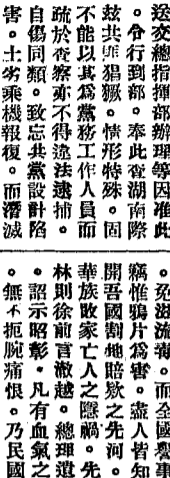 送交總指揮部辦理等因准此
。令行到部。奉此查湖南際
茲共匪猖獗。情形特殊。固
不能以其爲黨務工作人員而
疏於查察亦不得違法逮捕。
自傷同類。致忘共黨設計陷
害。土劣乘機報復。而潛滅
。免滋流毒。而全國鑒事
竊惟鴉片爲害。盡人皆知
開吾國割地賠欵之先河。
華族敗家亡人之隱禍。先
林則徐前言激越。總理遺
。詔示昭彰。凡有血氣之
。無不扼腕痛恨。乃民國